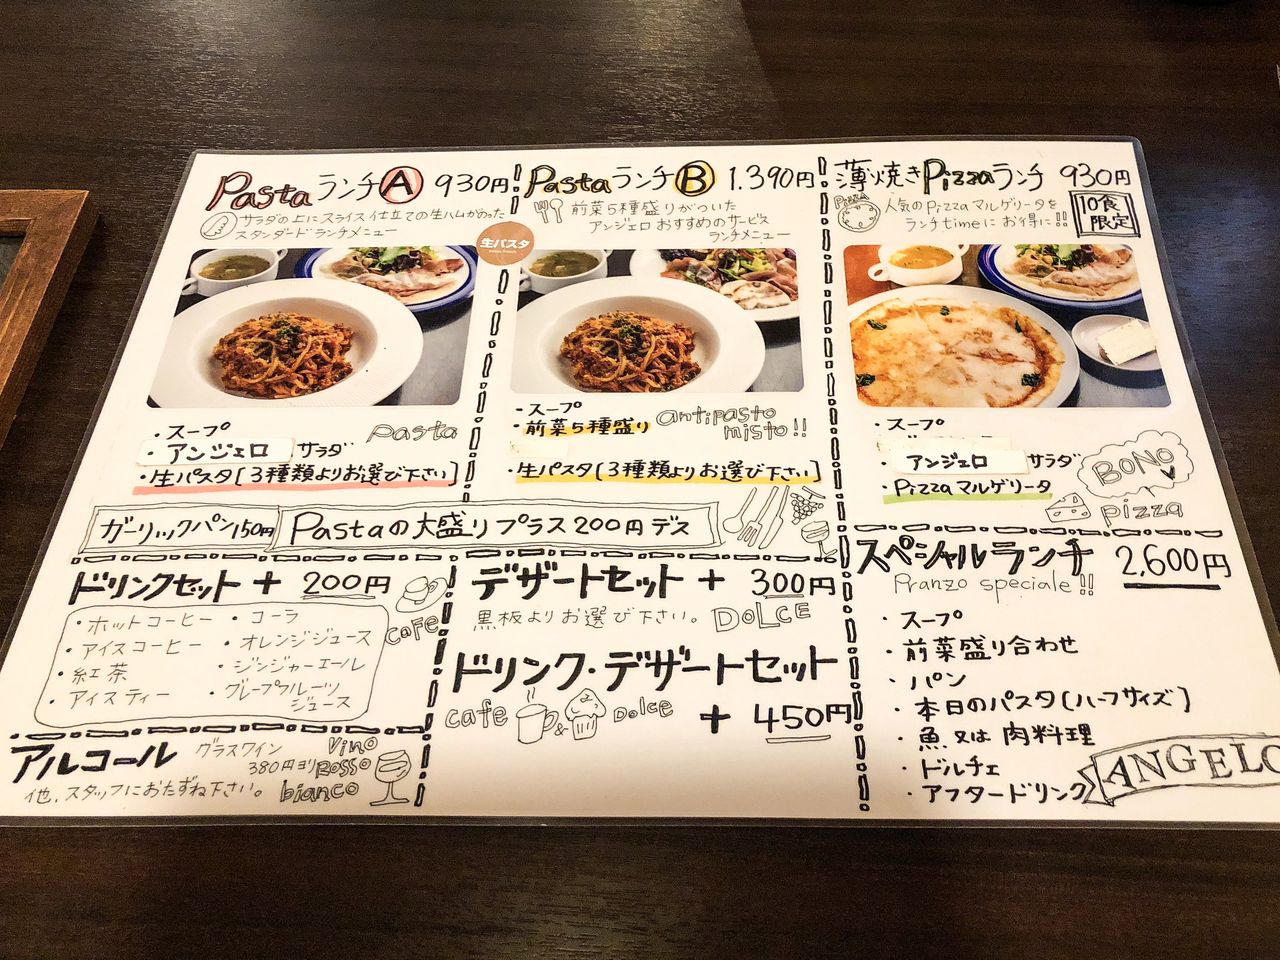 Pasta ランチ A 930円
サラダの上にスライス仕立ての生ハムがのった
スタンダードランチメニュー
・スープ
・アンジェロ サラダ
pasta
・生パスタ[3種類よりお選び下さい]
生パスタ
Pasta ランチ B 1.390円
前菜5種盛りがついた
アンジェロおすすめのサービス
ランチメニュー
・スープ
・前菜5種盛り
antipasto
misto!!
・生パスタ[3種類よりお選び下さい]
薄焼き Pizza ランチ 930円
PIZZA
人気のPizzaマルゲリータを
ランチtimeにお得に!!
10食
限定
・スープ
アンジェロ サラダ
・Pizzaマルゲリータ
BONO
pizza
ガーリックパン150円
Pastaの大盛りプラス200円デス
ドリンクセット + 200円
・ホットコーヒー ・コーラ
・アイスコーヒー ・オレンジジュース
・紅茶 ・ジンジャーエール
・アイスティー ・グレープフルーツ
ジュース
caFe
デザートセット + 300円
黒板よりお選び下さい。 DOLCE
ドリンク・デザートセット
cafe & Dolce + 450円
アルコール
グラスワイン
380円ヨリ
Vino
Rosso
bianco
他、スタッフにおたずね下さい。
スペシャルランチ 2,600円
Pranzo speciale!!
・スープ
・前菜盛り合わせ
・パン
・本日のパスタ[ハーフサイズ]
・魚又は肉料理
・ドルチェ
・アフタードリンク
ANGELO